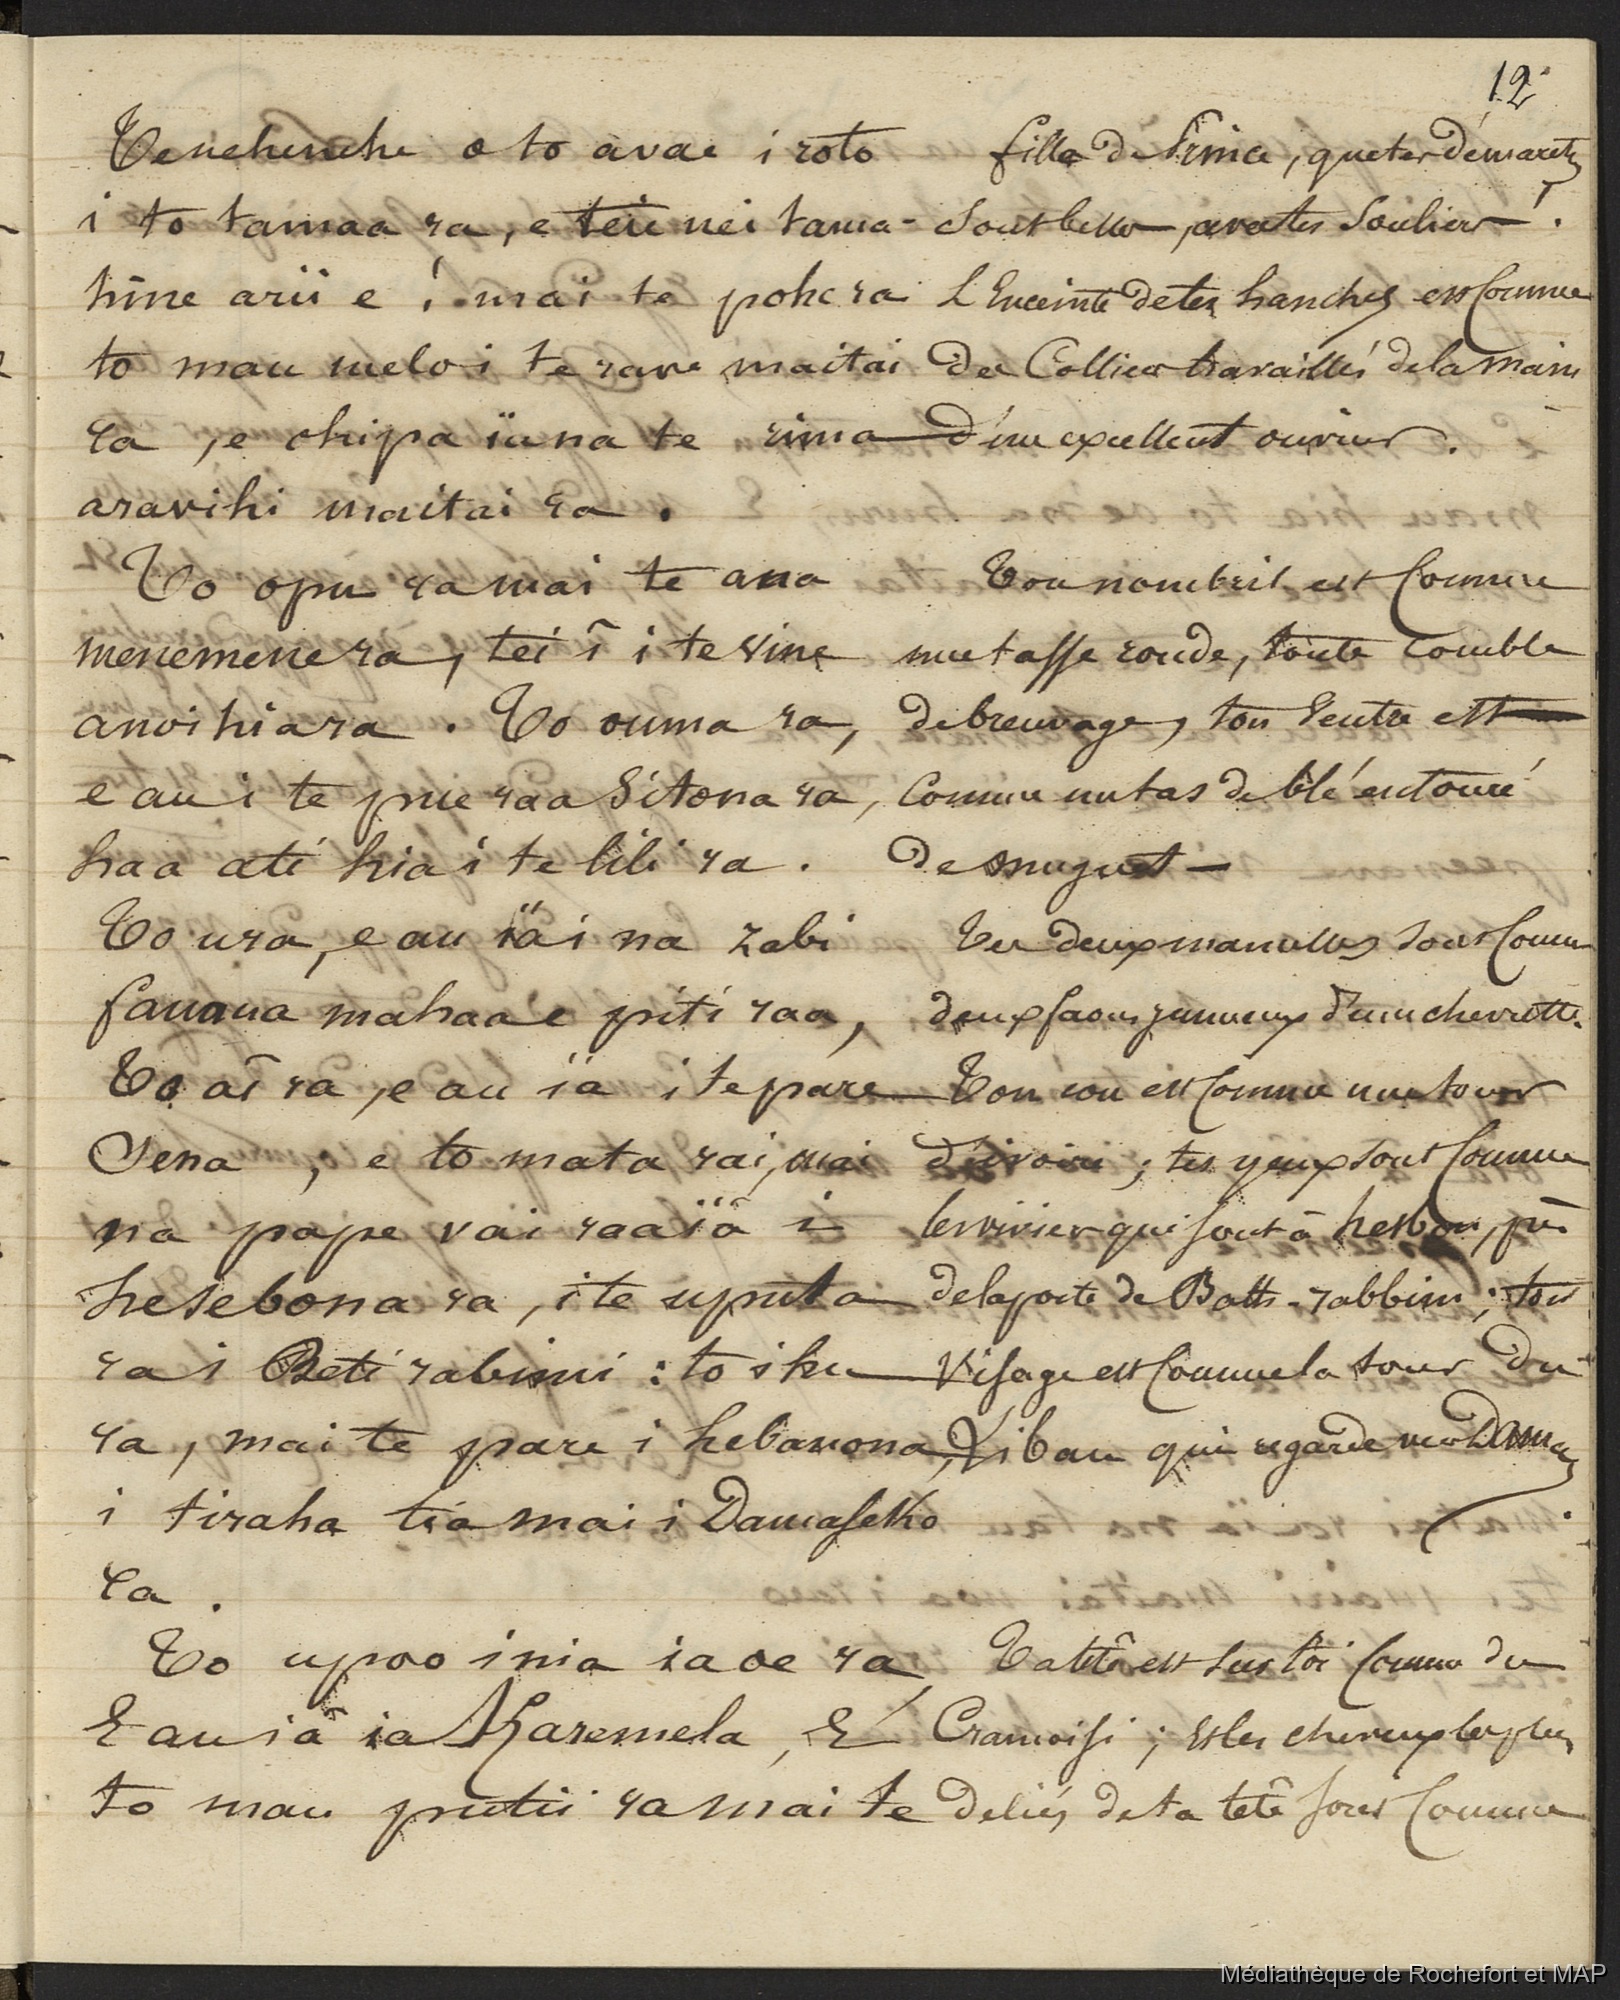 12
Te nehenehe o to avae i roto
i to tamaa ra, e teie nei tama-
hine arii e ! mai te pohe ra
to mau melo i te rave maitai
ra, e ohipa ïa na te rima
aravihi maitai ra.
To opu ra mai te aua
menemene ra, tei î i te vine
anoihia ra. To ouma ra,
e au i te pue raa Sitona ra,
haa ati hia i te lili ra.
To u ra, e au ïa i na zabi
fanaua mahaa e piti raa,
To aî ra, e au ïa i te pare
Sena, e to mata rai, mai
na pape vai raa ïa i
hesebona ra, i te uputa
ra i Beti rabimi : to ihu
ra, mai te pare i Lebanona,
i tiraha tia mai i Damaseko
ra.
To upoo i nia ia oe ra
E au ïa ia Karemela, E
to mau putii ra mai te
fille de Prince, que tes démarches
sont belles, avec tes souliers !.
L'Enceinte de tes hanches est comme
des Colliers travaillés de la main
d'un excellent ouvrier.
Ton nombril est comme
une tasse ronde, toute comble
de breuvage, ton ventre est
comme un tas de blé entouré
de muguet
Tes deux mamelles sont comme
deux faons jumeaux d'une chevrette.
Ton cou est comme une tour
d'ivoire ; tes yeux sont comme
les viviers qui sont à hesbon, près
de la porte de Bath-rabbim ; ton
visage est comme la tour du
Liban qui regarde vers Damas.
Ta tête est sur toi comme du
Cramoisi ; et les cheveux les plus
déliés de ta tête sont comme
Médiathèque de Rochefort et MAP